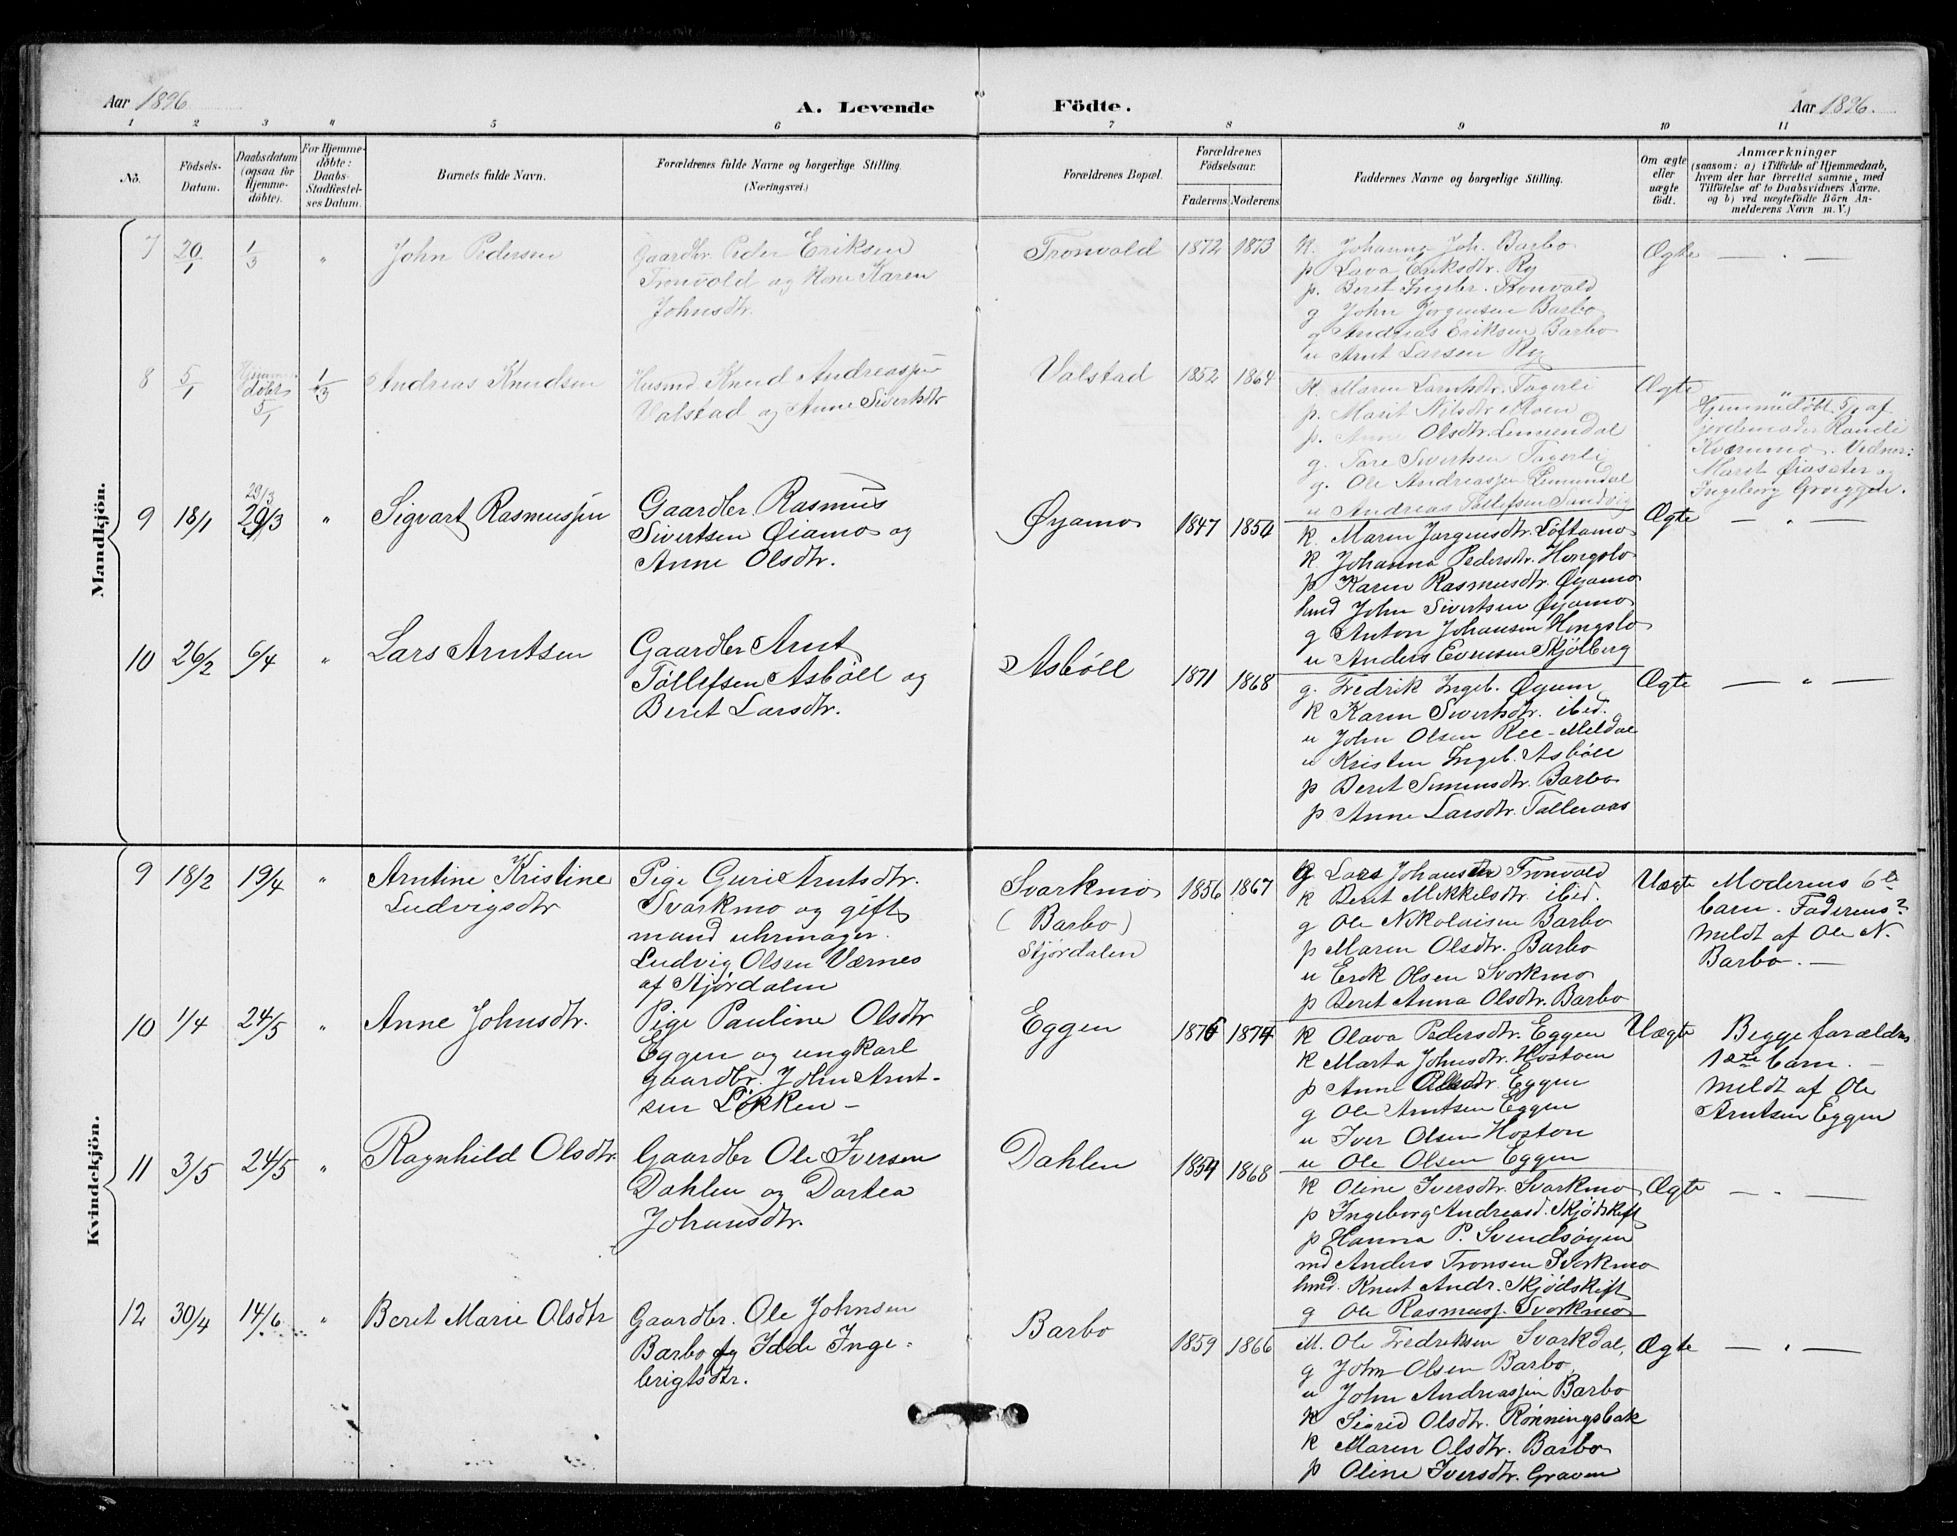 Aar 1896.
A. Levende Födte.
Aar 1896.
1 2 3 " 5 6 7 8 9 10 11
No.
Födsels-
Datum.
Daabsdatum
(ogsaa for
Hjemme-
döbte).
For Hjemme-
döbte:
Daabs-
Stadfæstel-
ses Datum.
Barnets fulde Navn.
Forældrenes fulde Navne og borgerlige Stilling.
(Næringsvei.)
Forældrenes Bopæl.
Forældrenes
Födselsaar.
Faderens Moderens
Faddernes Navne og borgerlige Stilling.
Om ægte
eller
uægte
födt.
Anmærkninger
(saasom: a) i Tilfælde af Hjemmedaab,
hvem der har forrettet samme, med
Tilföielse af to Daabsvidners Navne.
og b) ved uægtefödte Börn An-
melderens Navn m. V.)
Mandkjön.
7 20/1 1/3 " John Pedersen
Gaardbr. Peder Eriksen
Tronvold og Kone Karen
Johnsdtr.
Tronvold 1872 1873
K. Johanna Joh. Barbo
p Lava Eriksdtr. Ry
p. Beret Ingebr. Tronvold
g John Jørgensen Barbo
g Andreas Eriksen Barbo
u Arnt Larsen Ry
Ægte — " —
8 5/1 Hjemme-
döbt
5/1
1/3 Andreas Knudsen
Husmd Knud Andreassen
Valstad og Anne Sivertsdtr
Valstad 1852 1864
K. Maren Fagerli
p. Marit Nilsdtr Moen
p. Anne Olsdtr.
g. Tore Sivertsen Fagerli
g. Ole Andreassen
u Andreas Tollefsen Sandvig
Ægte "
Hjemmedøbt 5/1 af
jordemoder Randi
Kværnmo. Vidner:
Marit Øiasæter og
Ingeborg
9 18/1 29/3
29/3 " Sigvart Rasmussen
Gaardbr Rasmus
Sivertsen Øiamo og
Anne Olsdtr.
Øyamo 1847 1854
K. Maren Jørgensdtr. Løftamo
K. Johanna Pedersdtr. Hongslo
p Karen Rasmusdtr. Øyamo
hmd John Sivertsen Øyamo
g Anton Johansen Hongslo
u Anders Evensen Skjølberg
Ægte — " —
10 26/2 6/4 " Lars Arntsen
Gaardbr Arnt
Tøllefsen Asbøll og
Beret Larsdtr.
Asbøll 1871 1868
g. Fredrik Ingeb. Øyum
K Karen Sivertsdtr. ibid.
u John Olsen Ree-Meldal
u Kristen Ingeb. Asbøll
p Beret Simensdtr. Barbo
p Anne Larsdtr. Talleraas
Ægte — " —
Kvindekjön.
9 18/2 19/4 " Arntine Kristine
Ludvigsdtr
Pige Guri Arntsdtr.
Svorkmo og gift
mand uhrmager
Ludvig Olsen Værnes
af Stjørdalen
Svorkmo
(Barbo)
Stjørdalen
1856 1867
g Lars Johansen Tronvold
K Beret Mikkelsdtr. ibid.
g Ole Nikolaisen Barbo
p Maren Olsdtr. Barbo
u Erik Olsen Svorkmo
p Beret Anna Olsdtr. Barbo
Uægte Moderens 6te
barn. Faderens?
Meldt af Ole N.
Barbo. —
10 1/4 24/5 " Anne Johnsdtr.
Pige Pauline Olsdtr
Eggen og ungkarl
gaardbr. John Arnt-
sen Løkken —
Eggen 1876 1874
K Olava Pedersdtr. Eggen
K Marta Johnsdtr. Hostoen
p Anne Olsdtr. Eggen
g Ole Arntsen Eggen
u Iver Olsen Hoston
u Ole Olsen Eggen
Uægte Begge forældres
1ste barn. —
Meldt af Ole
Arntsen Eggen
11 3/5 24/5 " Ragnhild Olsdtr.
Gaardbr Ole Iversen
Dahlen og Dortea
Johansdtr.
Dahlen 1854 1868
K Oline Iversdtr. Svorkmo
p Ingeborg Andreasd. Skjødskift
p Hanna P. Svendsøyen
md Anders Tronsen Svorkmo
hmd. Knut Andr. Skjødskift
g Ole Rasmuss. Svorkmo
Ægte — " —
12 30/4 14/6 " Beret Marie Olsdtr
Gaardbr. Ole Johnsen
Barbo og Idde Inge-
brigtsdtr.
Barbo 1859 1866
M. Ole Fredriksen Svorkdal,
g John Olsen Barbo,
u John Andreassen Barbo
K Sigrid Olsdtr. Rønningsbak
K Maren Olsdtr. Barbo
p Oline Iversdtr. Graven
Ægte — " —